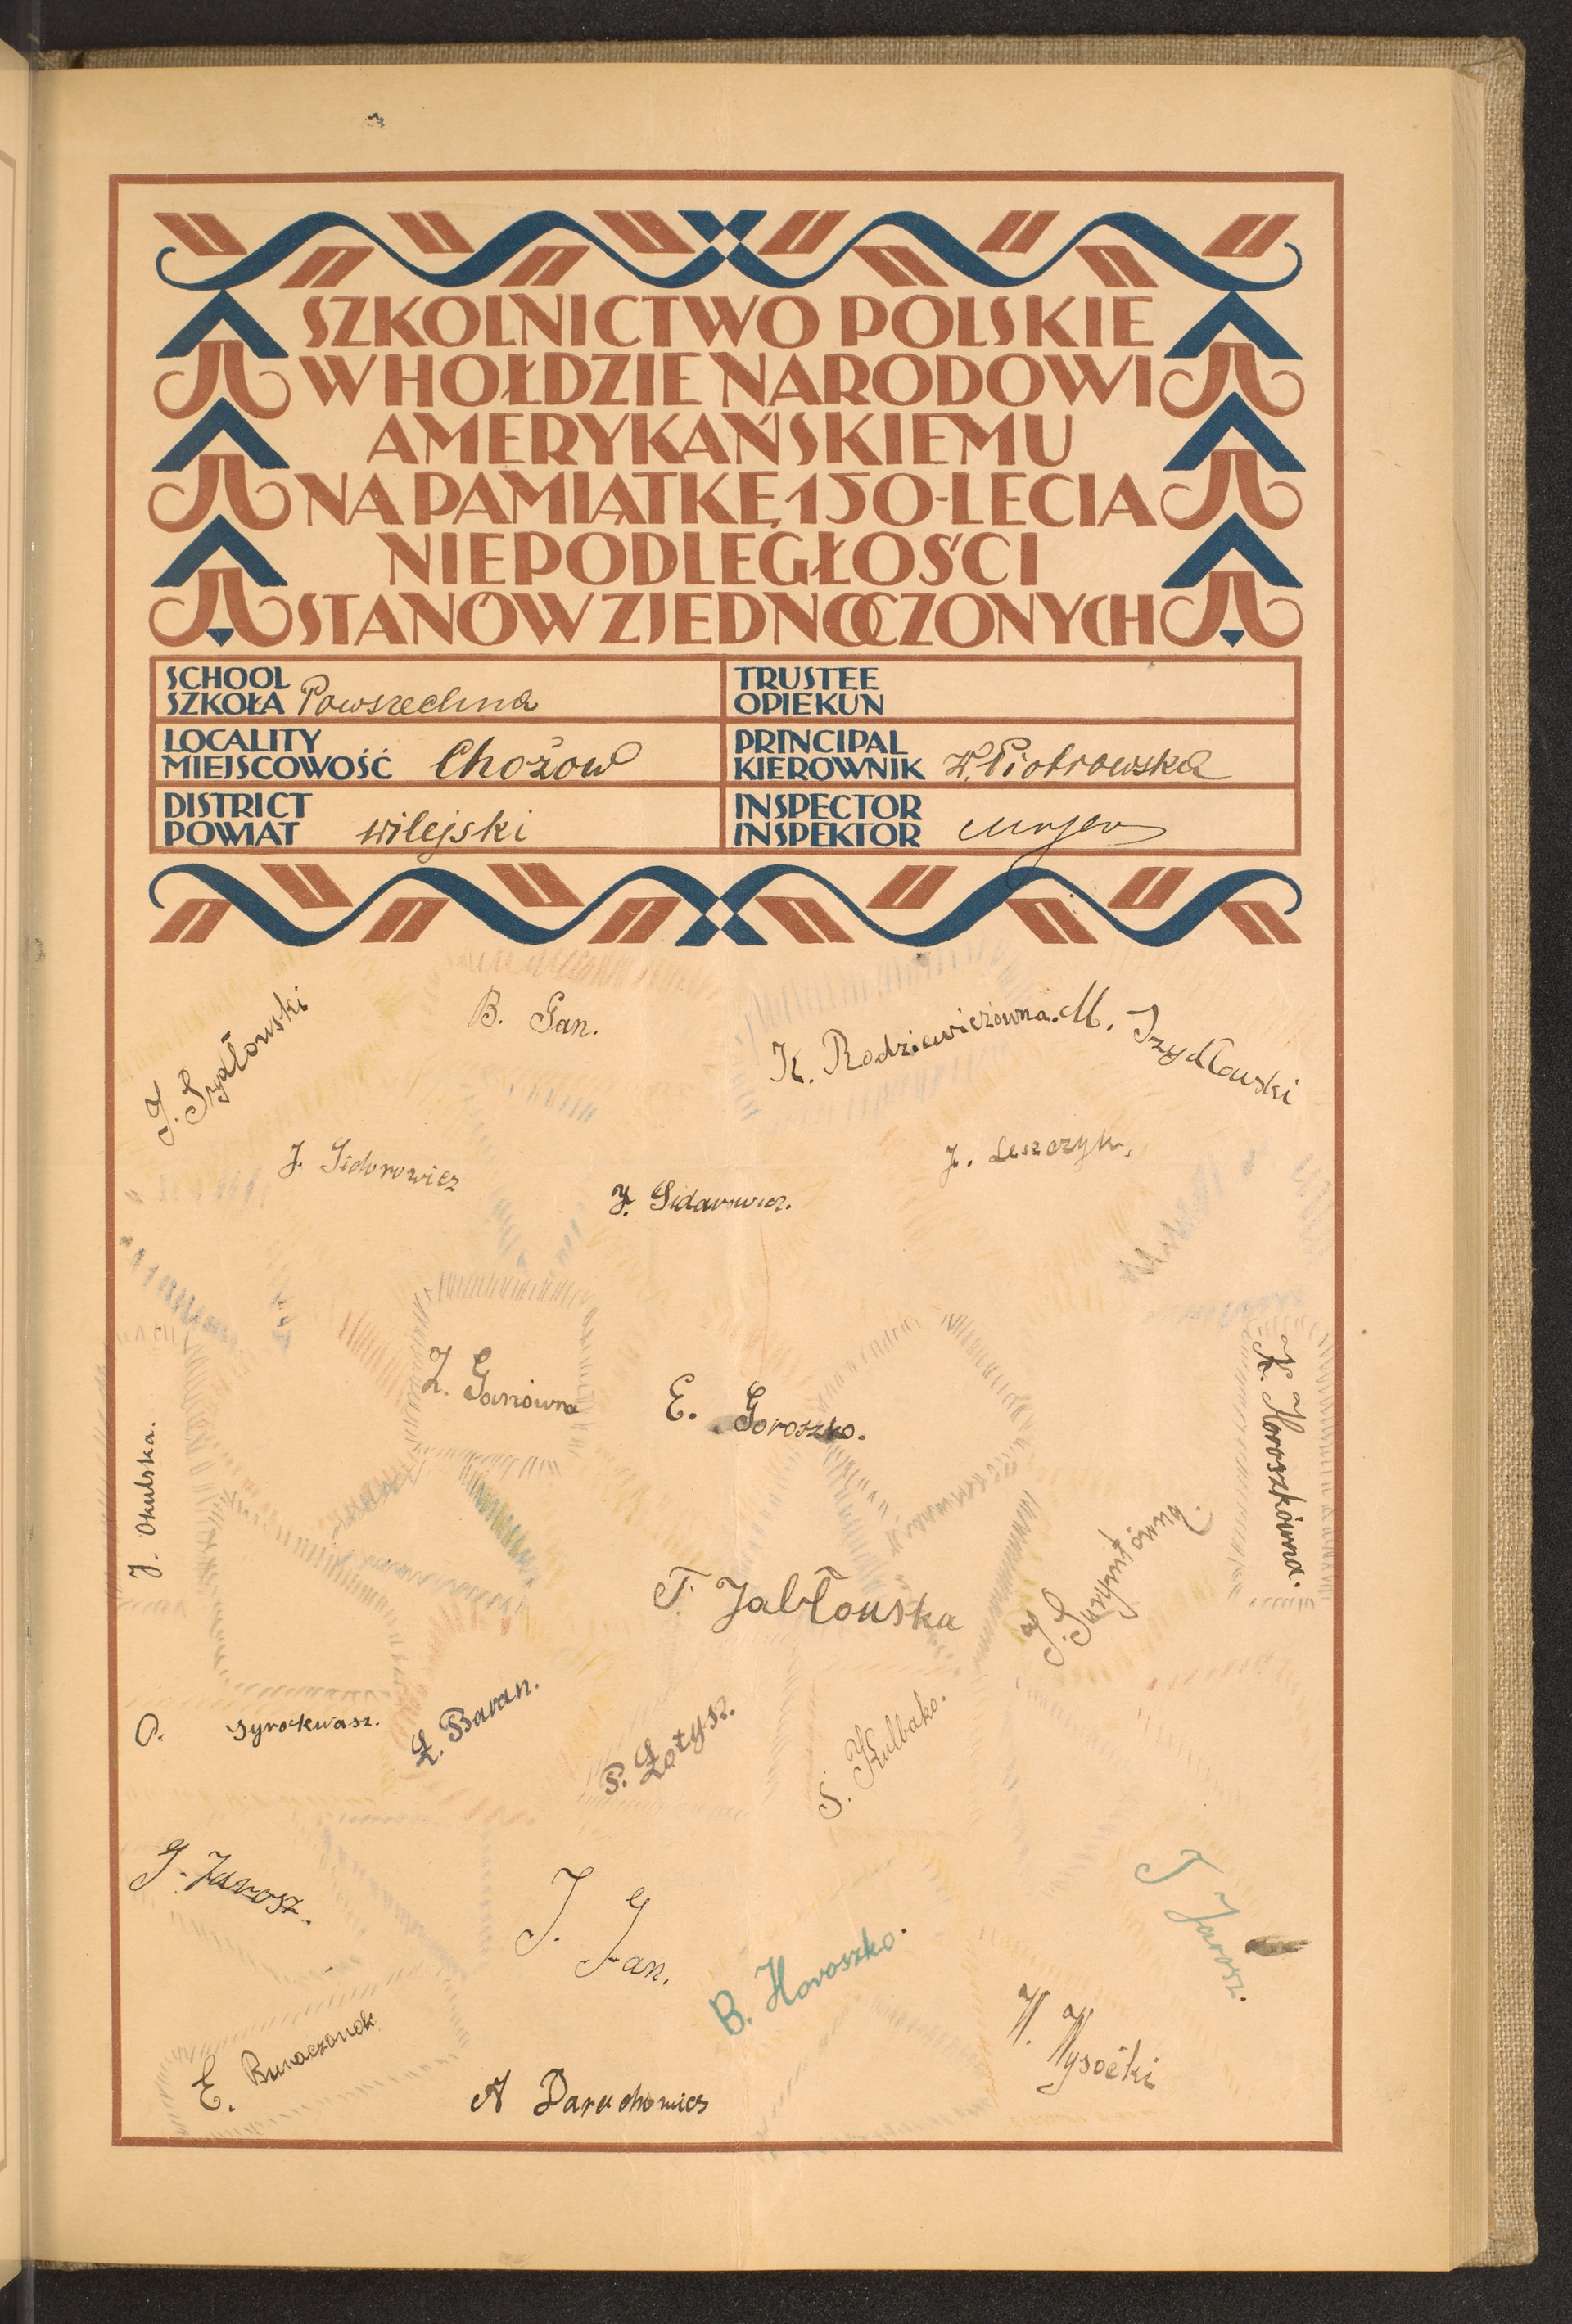 SZKOLNICTWO POLSKIE
W HOŁDZIE NARODOWI
AMERYKAŃSKIEMU
NA PAMIĄTKĘ 150-LECIA
NIEPODLEGŁOŚCI
STANÓW ZJEDNOCZONYCH
SCHOOL
SZKOŁA Powszechna
TRUSTEE
OPIEKUN
LOCALITY
MIEJSCOWOŚĆ Chożow
PRINCIPAL
KIEROWNIK W. Piotrowska
DISTRICT
POWIAT wilejski
INSPECTOR
INSPEKTOR
J. Szydłowski
B. Gan.
K. Rodziewiczówna.
M. Szydłowski
J. Sidorowicz
J. Sidarowicz.
J. Leszczyk.
Z. Ganówna
E. Goroszko.
K. Horoszkówna.
J. Okulska.
F. Jabłouska
J. Surymtówna.
O. Syrokwasz.
Ł. Baran.
P. Łotysz.
S. Kulbako.
J. Jarosz.
J. Gan.
B. Horoszko.
J Jarosz.
E. Buraczonek
A Daruchowics
W. Wysocki